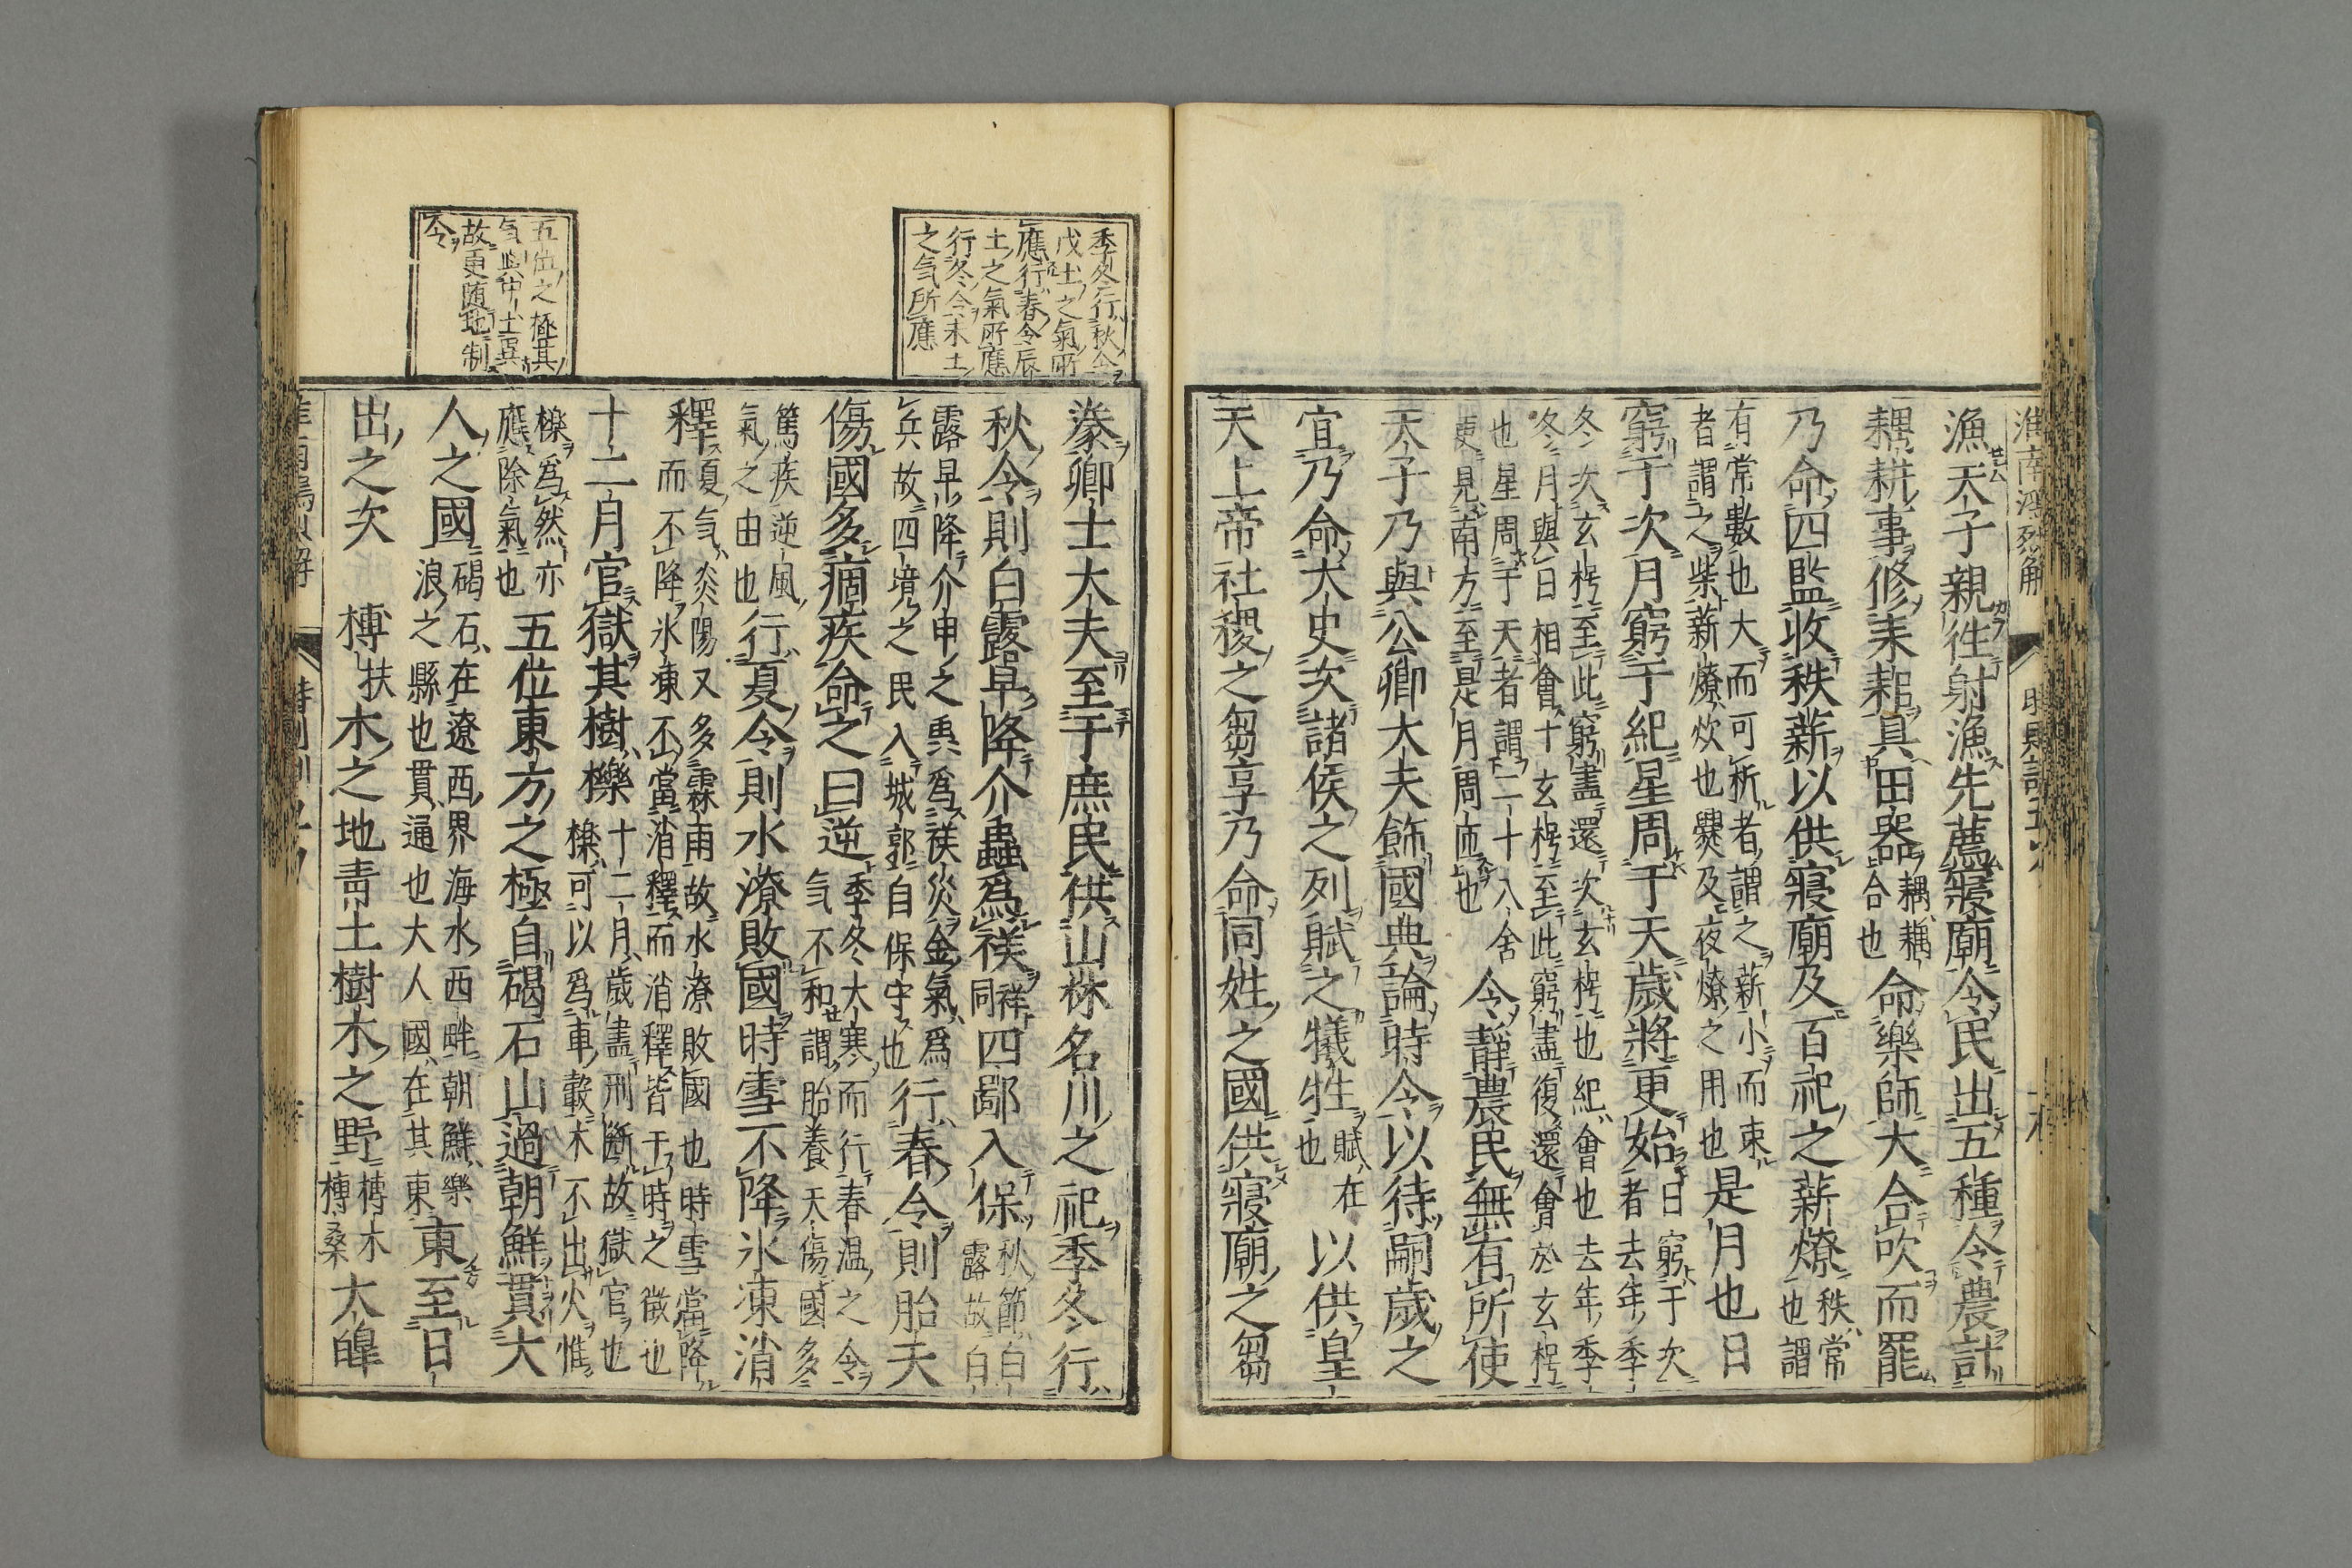 淮南鴻烈解
漁天子親往射漁先薦寢廟令民出五種令農計
耦耕事修耒耜具田器耦耦合也命樂師大合吹而罷
乃命四監收秩薪以供寢廟及百祀之薪燎秩常也謂
有常數也大而可析者謂之薪小而束者謂之柴薪燎炊也爨及夜燎之用也是月也日
窮于次月窮于紀星周于天歲將更始日窮于次者去年季
冬次玄枵至此窮盡還次玄枵也紀會也去年季冬月與日相會十玄枵至此窮盡復還會於玄枵
也星周于天者謂二十八舍更見南方至是月周匝也令靜農民無有所使
天子乃與公卿大夫飾國典論時令以待嗣歲之
宜乃命大史次諸侯之列賦之犧牲賦在也以供皇
天上帝社稷之芻享乃命同姓之國供寢廟之芻
季冬行秋令
戊土之氣所
應行春令辰
土之氣所應
行冬令未土
之気所應
豢卿士大夫至于庶民供山林名川之祀季冬行
秋令則白露早降介蟲爲祆祥同四鄙入保秋節白露故白
露早降介申之興爲祆災金氣爲兵故四境之民入城郭自保守也行春令則胎夭
傷國多痼疾命之曰逆季冬大寒而行春温之令気不和謂胎養夭傷國多
篤疾逆風氣之由也行夏令則水潦敗國時雪不降氷凍消
釋夏気炎陽又多霖雨故水潦敗國也時雪當降而不降氷凍不當消釋而消釋皆干時之徴也
十二月官獄其樹櫟十二月歲盡刑斷故獄官也櫟可以爲車轂木不出火惟
櫟爲然亦應除氣也五位東方之極自碣石山過朝鮮貫大
人之國碣石在遼西界海水西畔朝鮮樂浪之縣也貫通也大人國在其東東至日
出之次榑扶木之地青土樹木之野榑木榑桑大皥
五位之極其
気與中土異
故更随地制
令